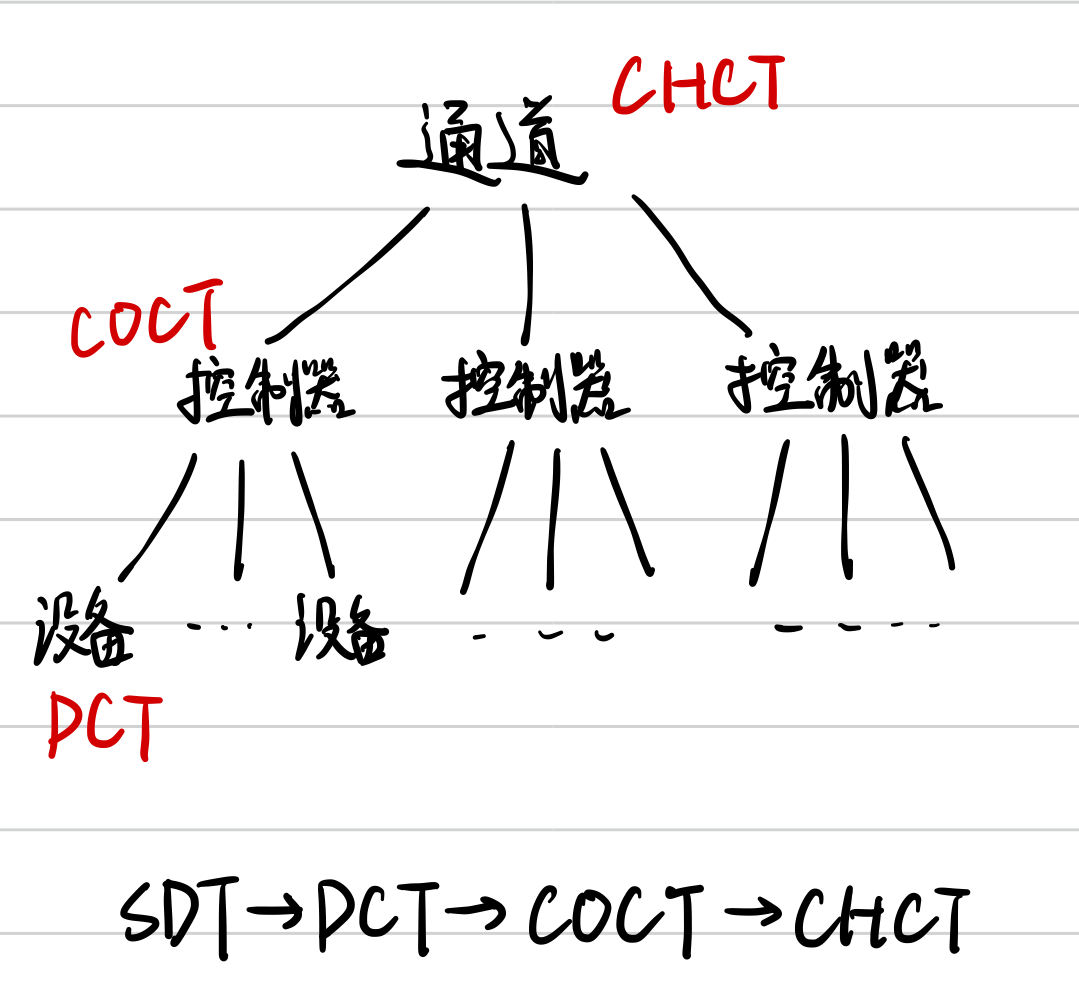 CHCT
通道
COCT
控制器 控制器 控制器
设备 ... 设备 --- ----
DCT
SDT→DCT→COCT→CHCT